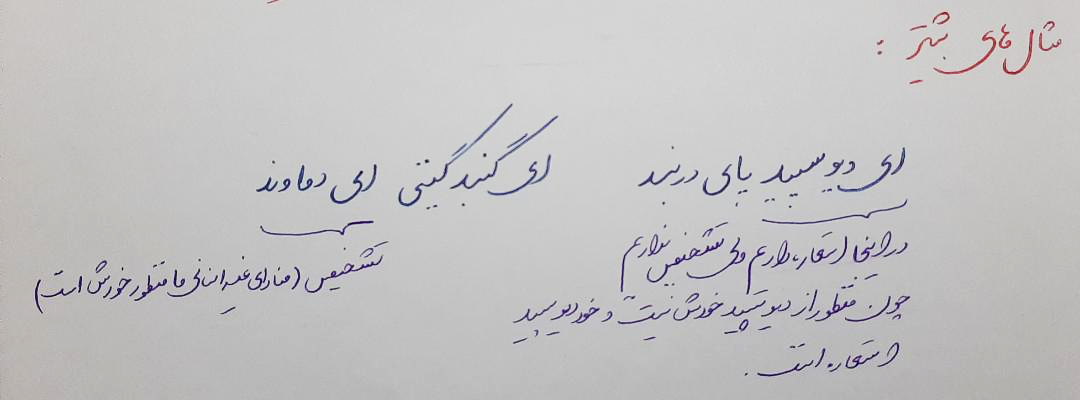 مثال های بیشتر :
ای دیو سپید پای در بند ای گنبد گیتی ای دماوند
در اینجا استعاره داریم ولی تشخیص نداریم
چون منظور از دیو سپید خودش نیست و خود دیو سپید
استعاره است .
تشخیص (منادای غیر انسانی ما منظور خودش است)